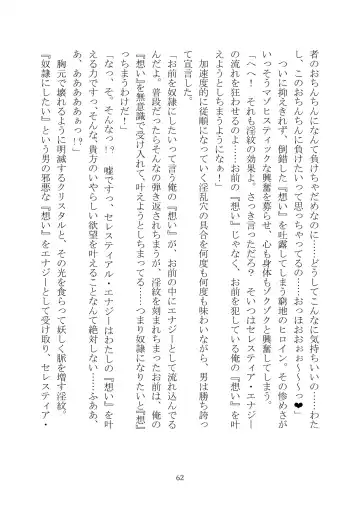 者のおちんちんになんて負けちゃだめなのに……どうしてこんなに気持ちいいの……わた
し、このおちんちんに負けたいって思っちゃってるの……おっほおおぉぉ〜〜〜っ❤
　ついに抑えきれず、倒錯した『想い』を吐露してしまう窮地のヒロイン。その惨めさが
いっそうマゾヒスティックな興奮を募らせ、心も身体もゾクゾクと興奮してしまう。
「へへ！　それも淫紋の効果よ。さっき言っただろ？　そいつはセレスティア・エナジー
の流れを狂わせるのよ……お前の『想い』じゃなく、お前を犯している俺の『想い』を叶
えようとしちまうようになぁ！」
　加速度的に従順になっていく淫乱穴の具合を何度も何度も味わいながら、男は勝ち誇っ
て宣言した。
「お前を奴隷にしたいって言う俺の『想い』が、お前の中にエナジーとして流れ込んでる
んだよ。普段だったらそんなの弾き返されちまうが、淫紋を刻まれちまったお前は、この
『想い』を無意識で受け入れて、叶えようとしちまってる……つまり奴隷になりたいと『想』
っちまうわけだ！」
「なっ、そ、そんなっ！？　嘘ですっ、セレスティアル・エナジーはわたしの『想い』を叶
える力ですっ、そんな、貴方のいやらしい欲望を叶えることなんて絶対しない……ふああ、
あ、ああああぁっ！？」
　胸元で壊れるように明滅するクリスタルと、その光を食らって妖しく脈を増す淫紋。
『奴隷にしたい』という男の邪悪な『想い』をエナジーとして受け取り、セレスティア・
62